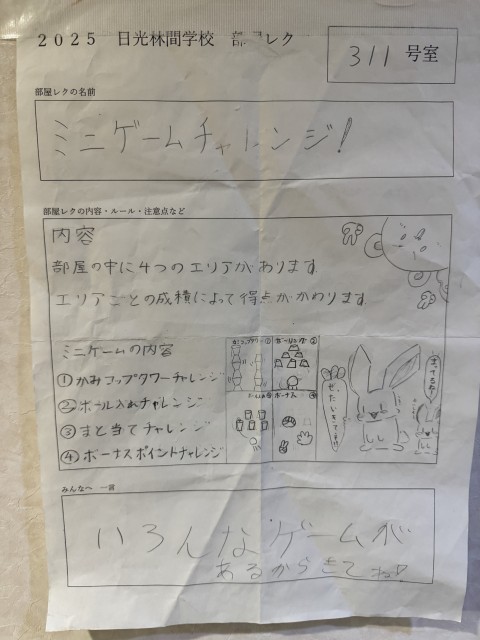 2025 日光林間学校 部屋レク
311 号室
部屋レクの名前
ミニゲームチャレンジ!
部屋レクの内容・ルール・注意点など
内容
部屋の中に4つのエリアがあります。
エリアごとの成績によって得点がかわります。
ミニゲームの内容
①かみコップタワーチャレンジ
②ボール入れチャレンジ
③まと当てチャレンジ
④ボーナスポイントチャレンジ
ぜったいきてネ!!
まってるね!
みんなへ 一言
いろんなゲームが
あるからきてね♡